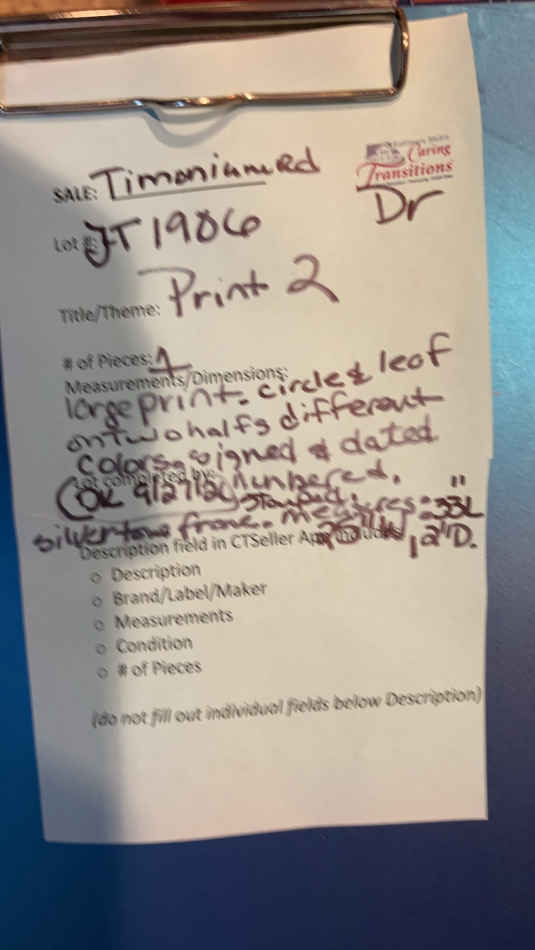 SALE: Timonium ed
Caring
Transitions
Dr
Lot #: JT 1906
Title/Theme: Print 2
# of Pieces: 1
Measurements/Dimensions:
large print. circle & leaf
on two halfs different
colors. signed & dated
Lot completed by:
numbered.
COR 9/27/20 stamped.
silvertone frame. measures: 33"L
Description field in CTSeller App
, 2"D.
o Description
o Brand/Label/Maker
o Measurements
o Condition
o # of Pieces
(do not fill out individual fields below Description)